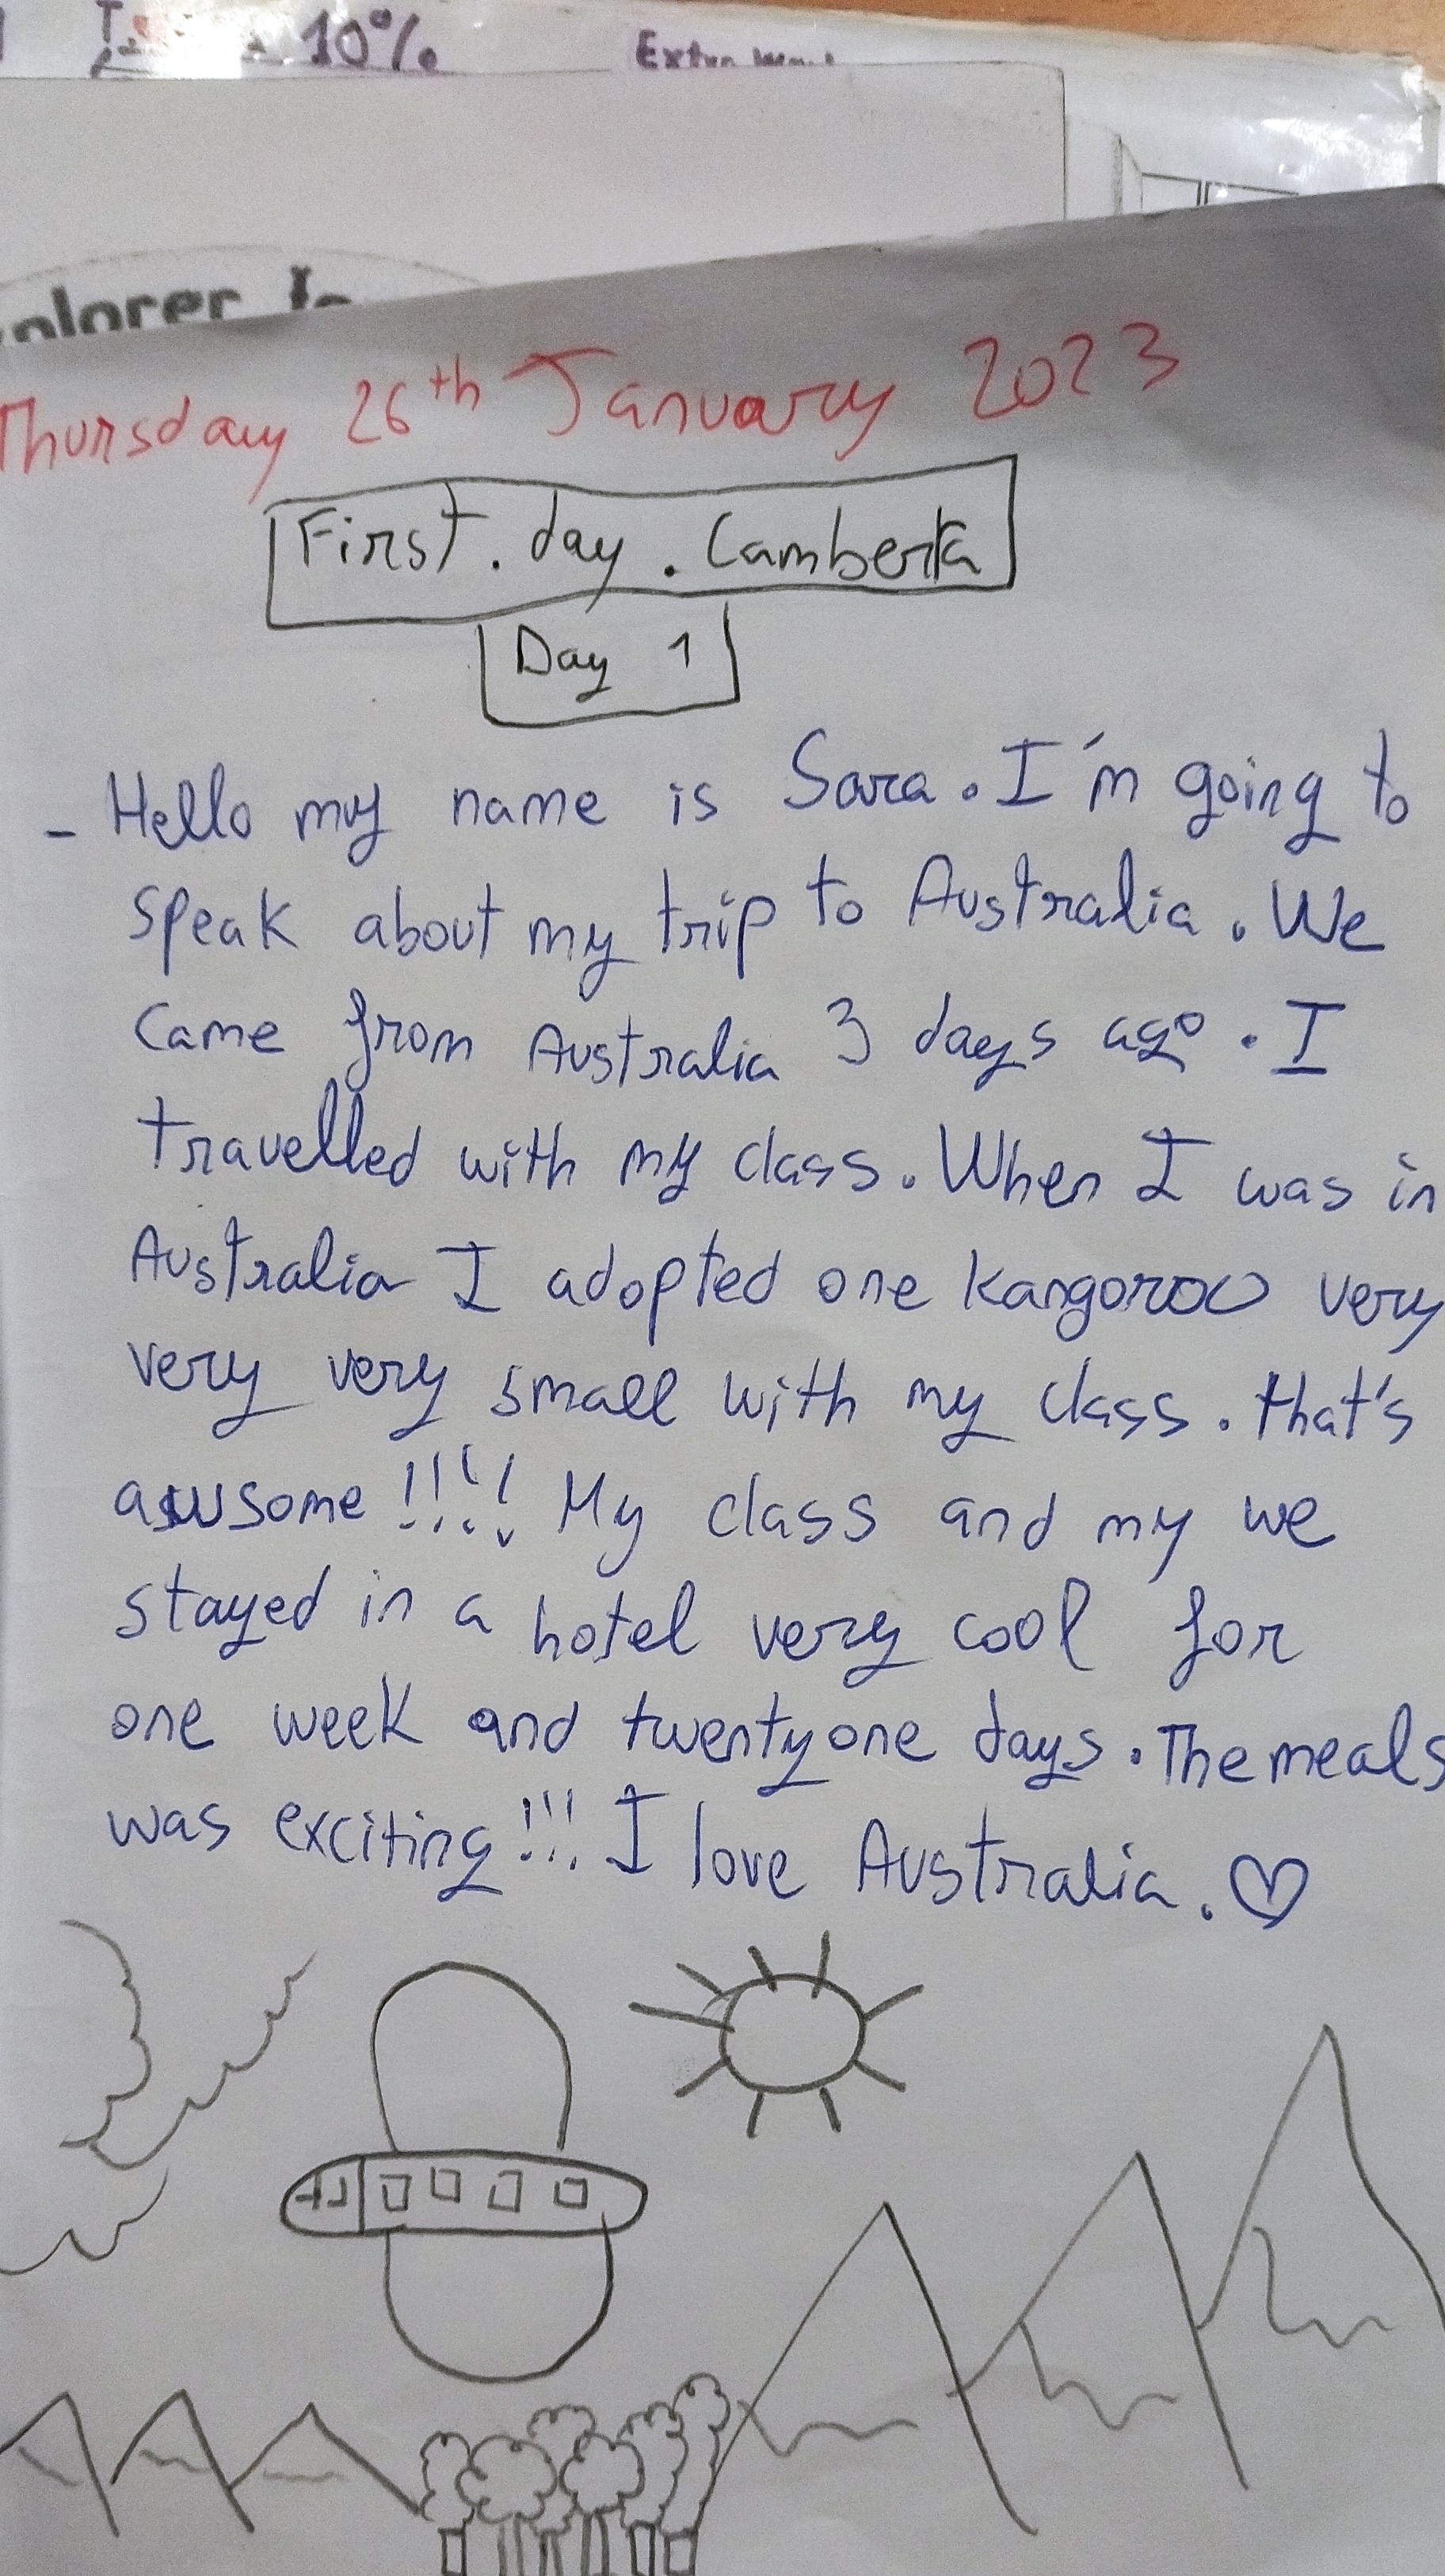 10%
Extra
plorer
Thursday 26th January 2023
First. day. Camberra
Day 1
- Hello my name is Sara. I'm going to
speak about my trip to Australia. We
came from Australia 3 days ago. I
travelled with my class. When I was in
Australia I adopted one kangoroo very
very very small with my class. that's
awsome!!!! My class and my we
stayed in a hotel very cool for
one week and twenty one days. The meals
was exciting!!! I love Australia. ♡